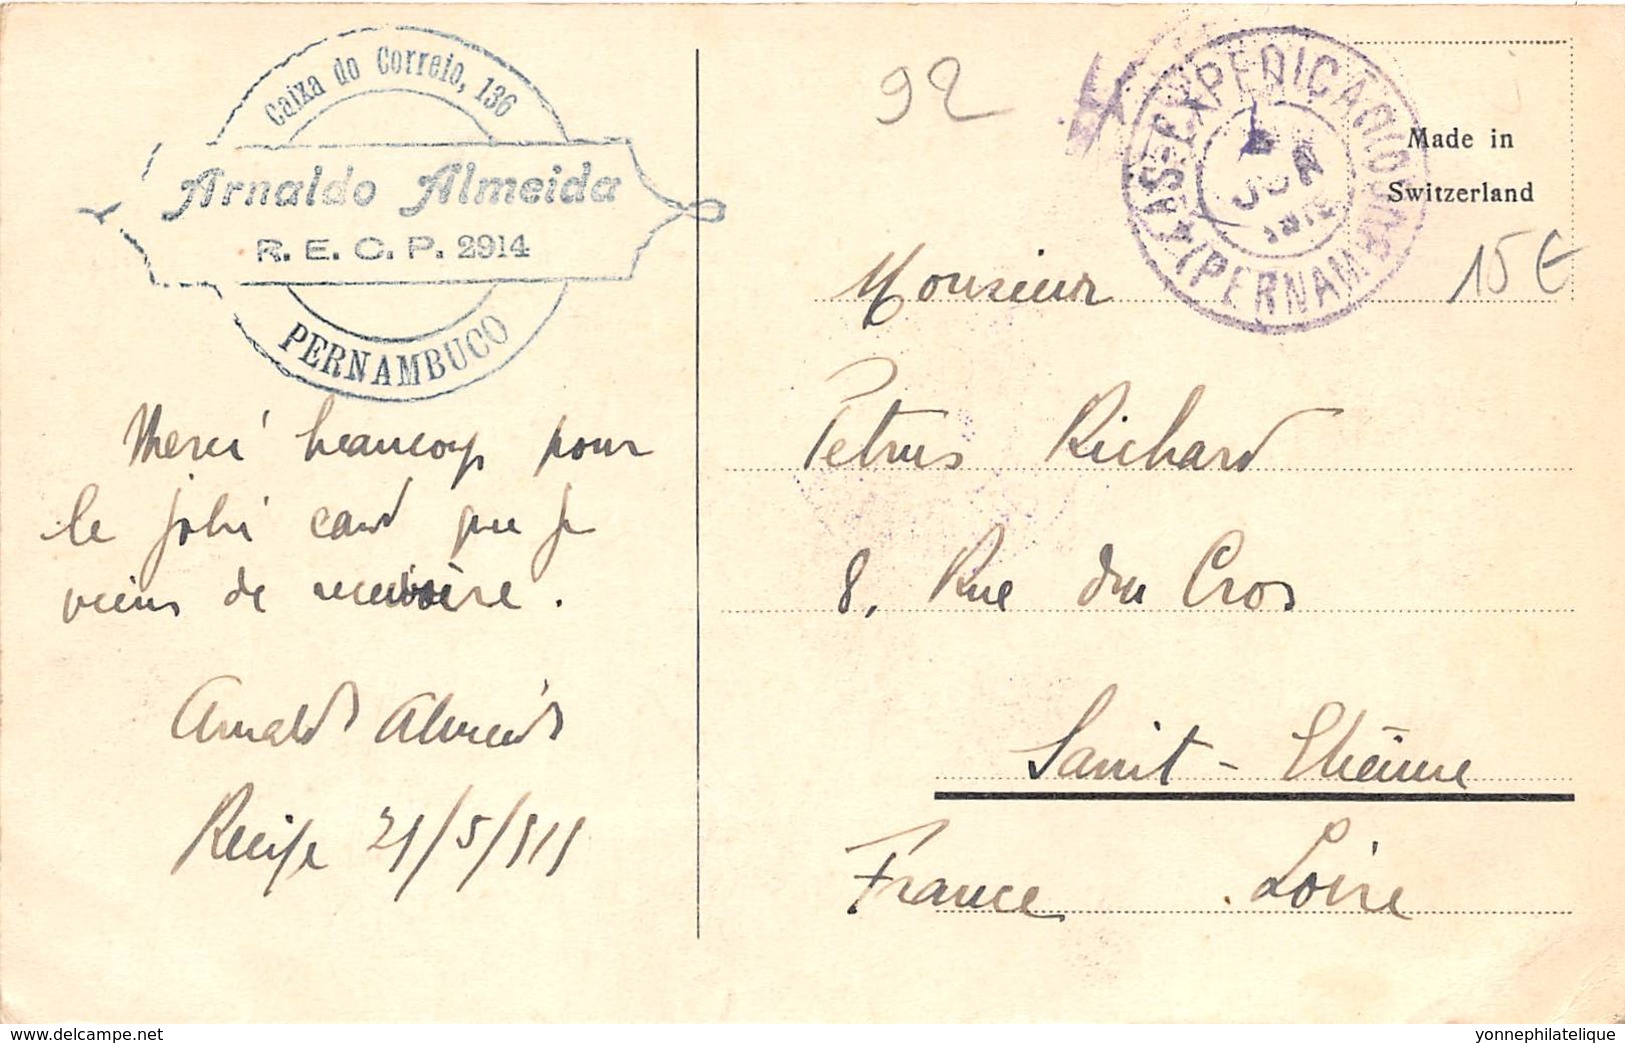 Caixa do Correio, 136
Arnaldo Almeida
R. E. C. P. 2914
PERNAMBUCO
Merci beaucoup pour
le joli card que je
viens de recevoire.
Arnaldo Almeida
Recife 21/5/911
92
AS-EXPEDIÇÃO
JUN
(PERNAM
Made in
Switzerland
15 €
Monsieur
Petrus Richard
8, Rue du Cros
Saint-Etienne
France . Loire
delcampe.net
yonnephilatelique